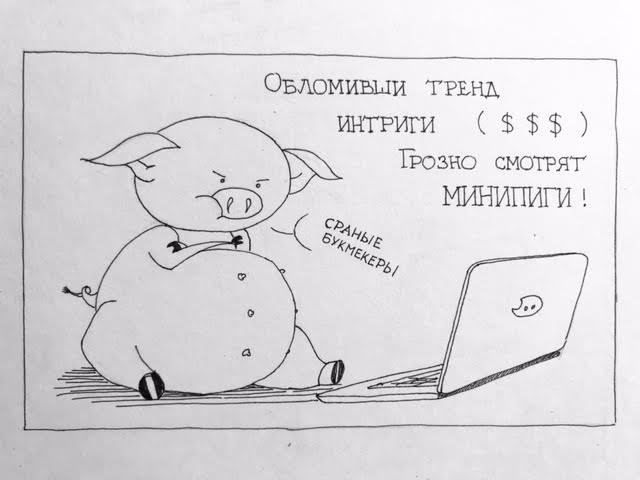 Обломивши тренд
интриги ( $ $ $ )
Грозно смотрят
минипиги !
сраные
букмекеры